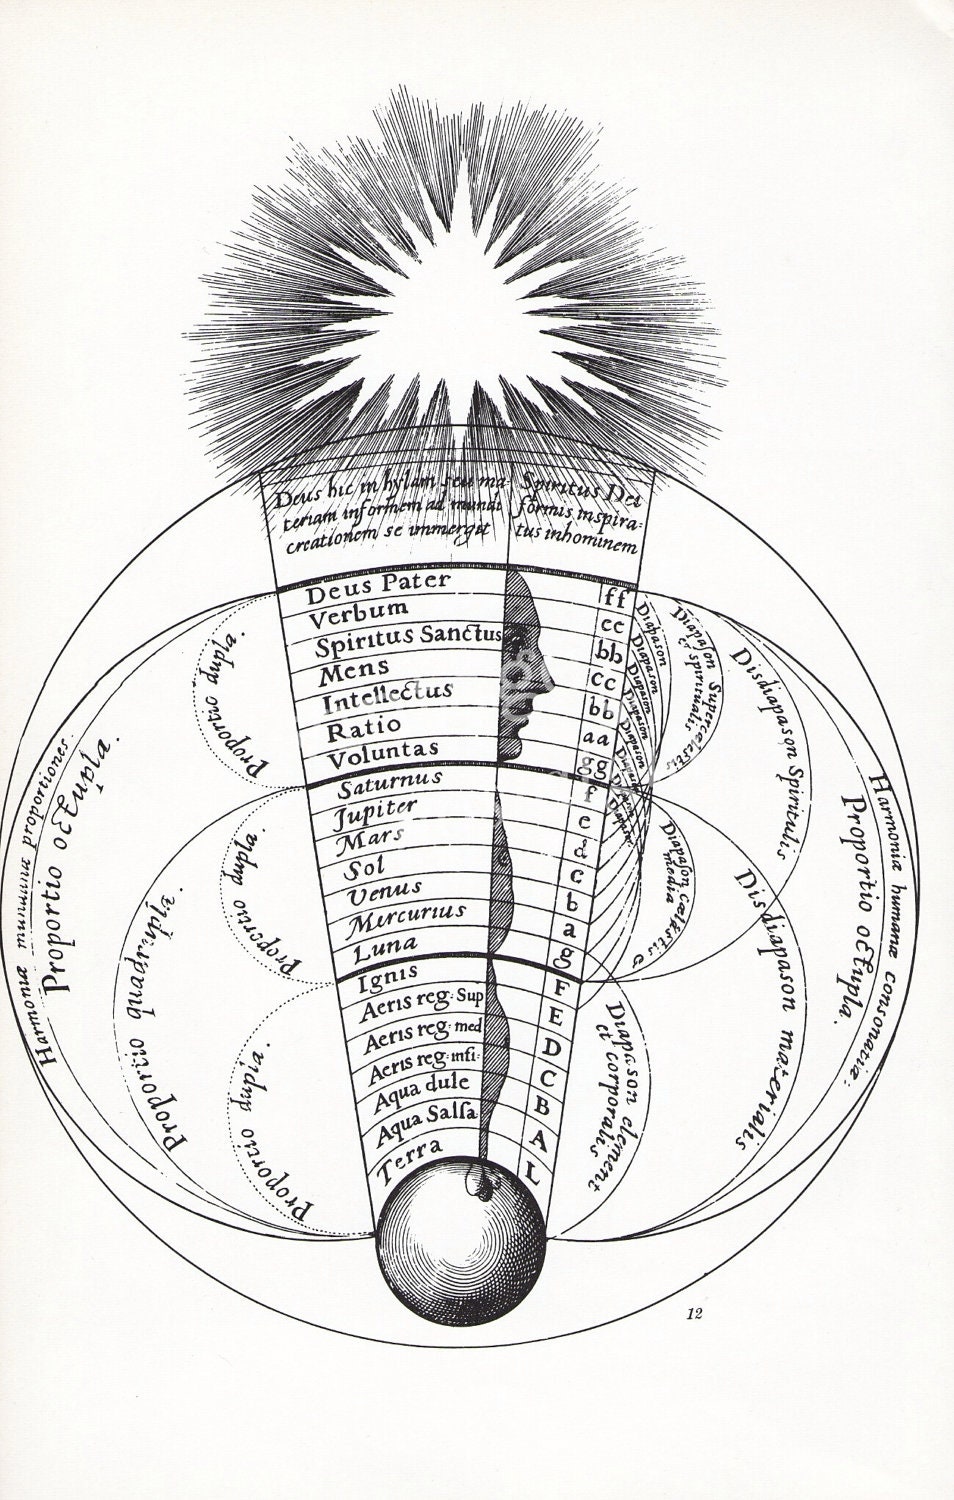 Deus hic in hylam seu ma-
teriam informem ad mundi
creationem se immergit
Spiritus Dei
formis inspira-
tus in hominem
Deus Pater
Verbum
Spiritus Sanctus
Mens
Intellectus
Ratio
Voluntas
Saturnus
Jupiter
Mars
Sol
Venus
Mercurius
Luna
Ignis
Aeris reg: Sup
Aeris reg: med
Aeris reg: infi:
Aqua dule
Aqua Salsa
Terra
ff
ee
bb
cc
bb
aa
gg
f
e
d
c
b
a
g
F
E
D
C
B
A
L
Proportio dupla.
Proportio dupla.
Proportio dupla.
Proportio quadrupla.
Proportio octupla.
Harmoniæ mundanæ proportiones.
Diapason
Diapason
Diapason
Diapason
Diapason
Diapason
Diapason
Diapason Supercælestis
et spiritualis
Diapason cælestis &
media
Diapason element
et corporalis
Disdiapason Spiritulis
Disdiapason materialis
Proportio octupla.
Harmonia humanæ consonatia:
12